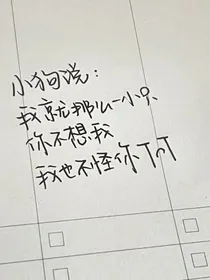 小狗说:
我就那么一小只
你不想我
我也不怪你T^T